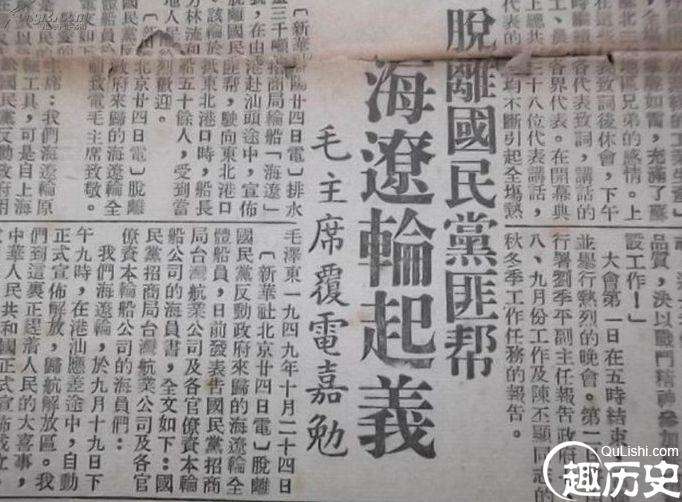 區兄弟的感情。上
致詞後休會，下午
代表致詞，講話的
各界代表。在開幕典
二十八位代表講話，
均不斷引起全場熱
品質，決以戰鬥精神參加
設工作！」
大會第一日在五時結束，
並舉行熱烈的晚會。第二
行署劉季平副主任報告政府
八、九月份工作及陳丕顯同志
秋冬季工作任務的報告。
脫離國民黨匪帮
海遼輪起義
毛主席覆電嘉勉
陽廿四日電〕排水
三千噸招商局輪船「海遼」
號，在由港赴汕頭途中，宣佈
脫離國民黨匪幫，駛向東北港口
。該輪於抵東北港口時，船長
方林流同船員五十餘人，受到當
地人民熱烈歡迎。
〔新華社北京廿四日電〕脫離
國民黨反動政府來歸的海遼輪全
電毛主席致敬。
主席：我們海遼輪原
工具，可是自上海
國民黨反動政府用
毛澤東一九四九年十月二十四日
〔新華社北京廿四日電〕脫離
國民黨反動政府來歸的海遼輪全
體船員，日前發表告國民黨招商
局台灣航業公司及各官僚資本輪
船公司的海員書，全文如下：國
民黨招商局台灣航業公司及各官
僚資本輪船公司的海員們：
我們海遼輪，於九月十九日下
午九時，在港汕應差途中，自動
正式宣佈解放，歸航解放區。我
們到這裏正趕着人民的大喜事，
中華人民共和國正式宣佈成立
QuLishi.com
趣历史